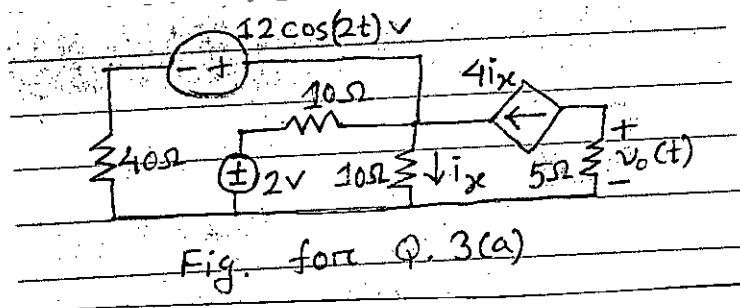 12 cos(2t) v
4ix
10Ω
+
40Ω
2v
10Ω
ix
5Ω
vo(t)
-
Fig. forr Q. 3(a)